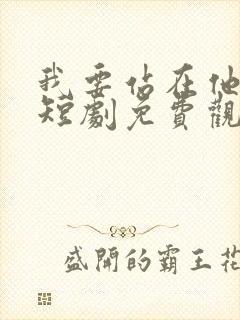 我要站在他
短劇免費觀
盛開的霸王花